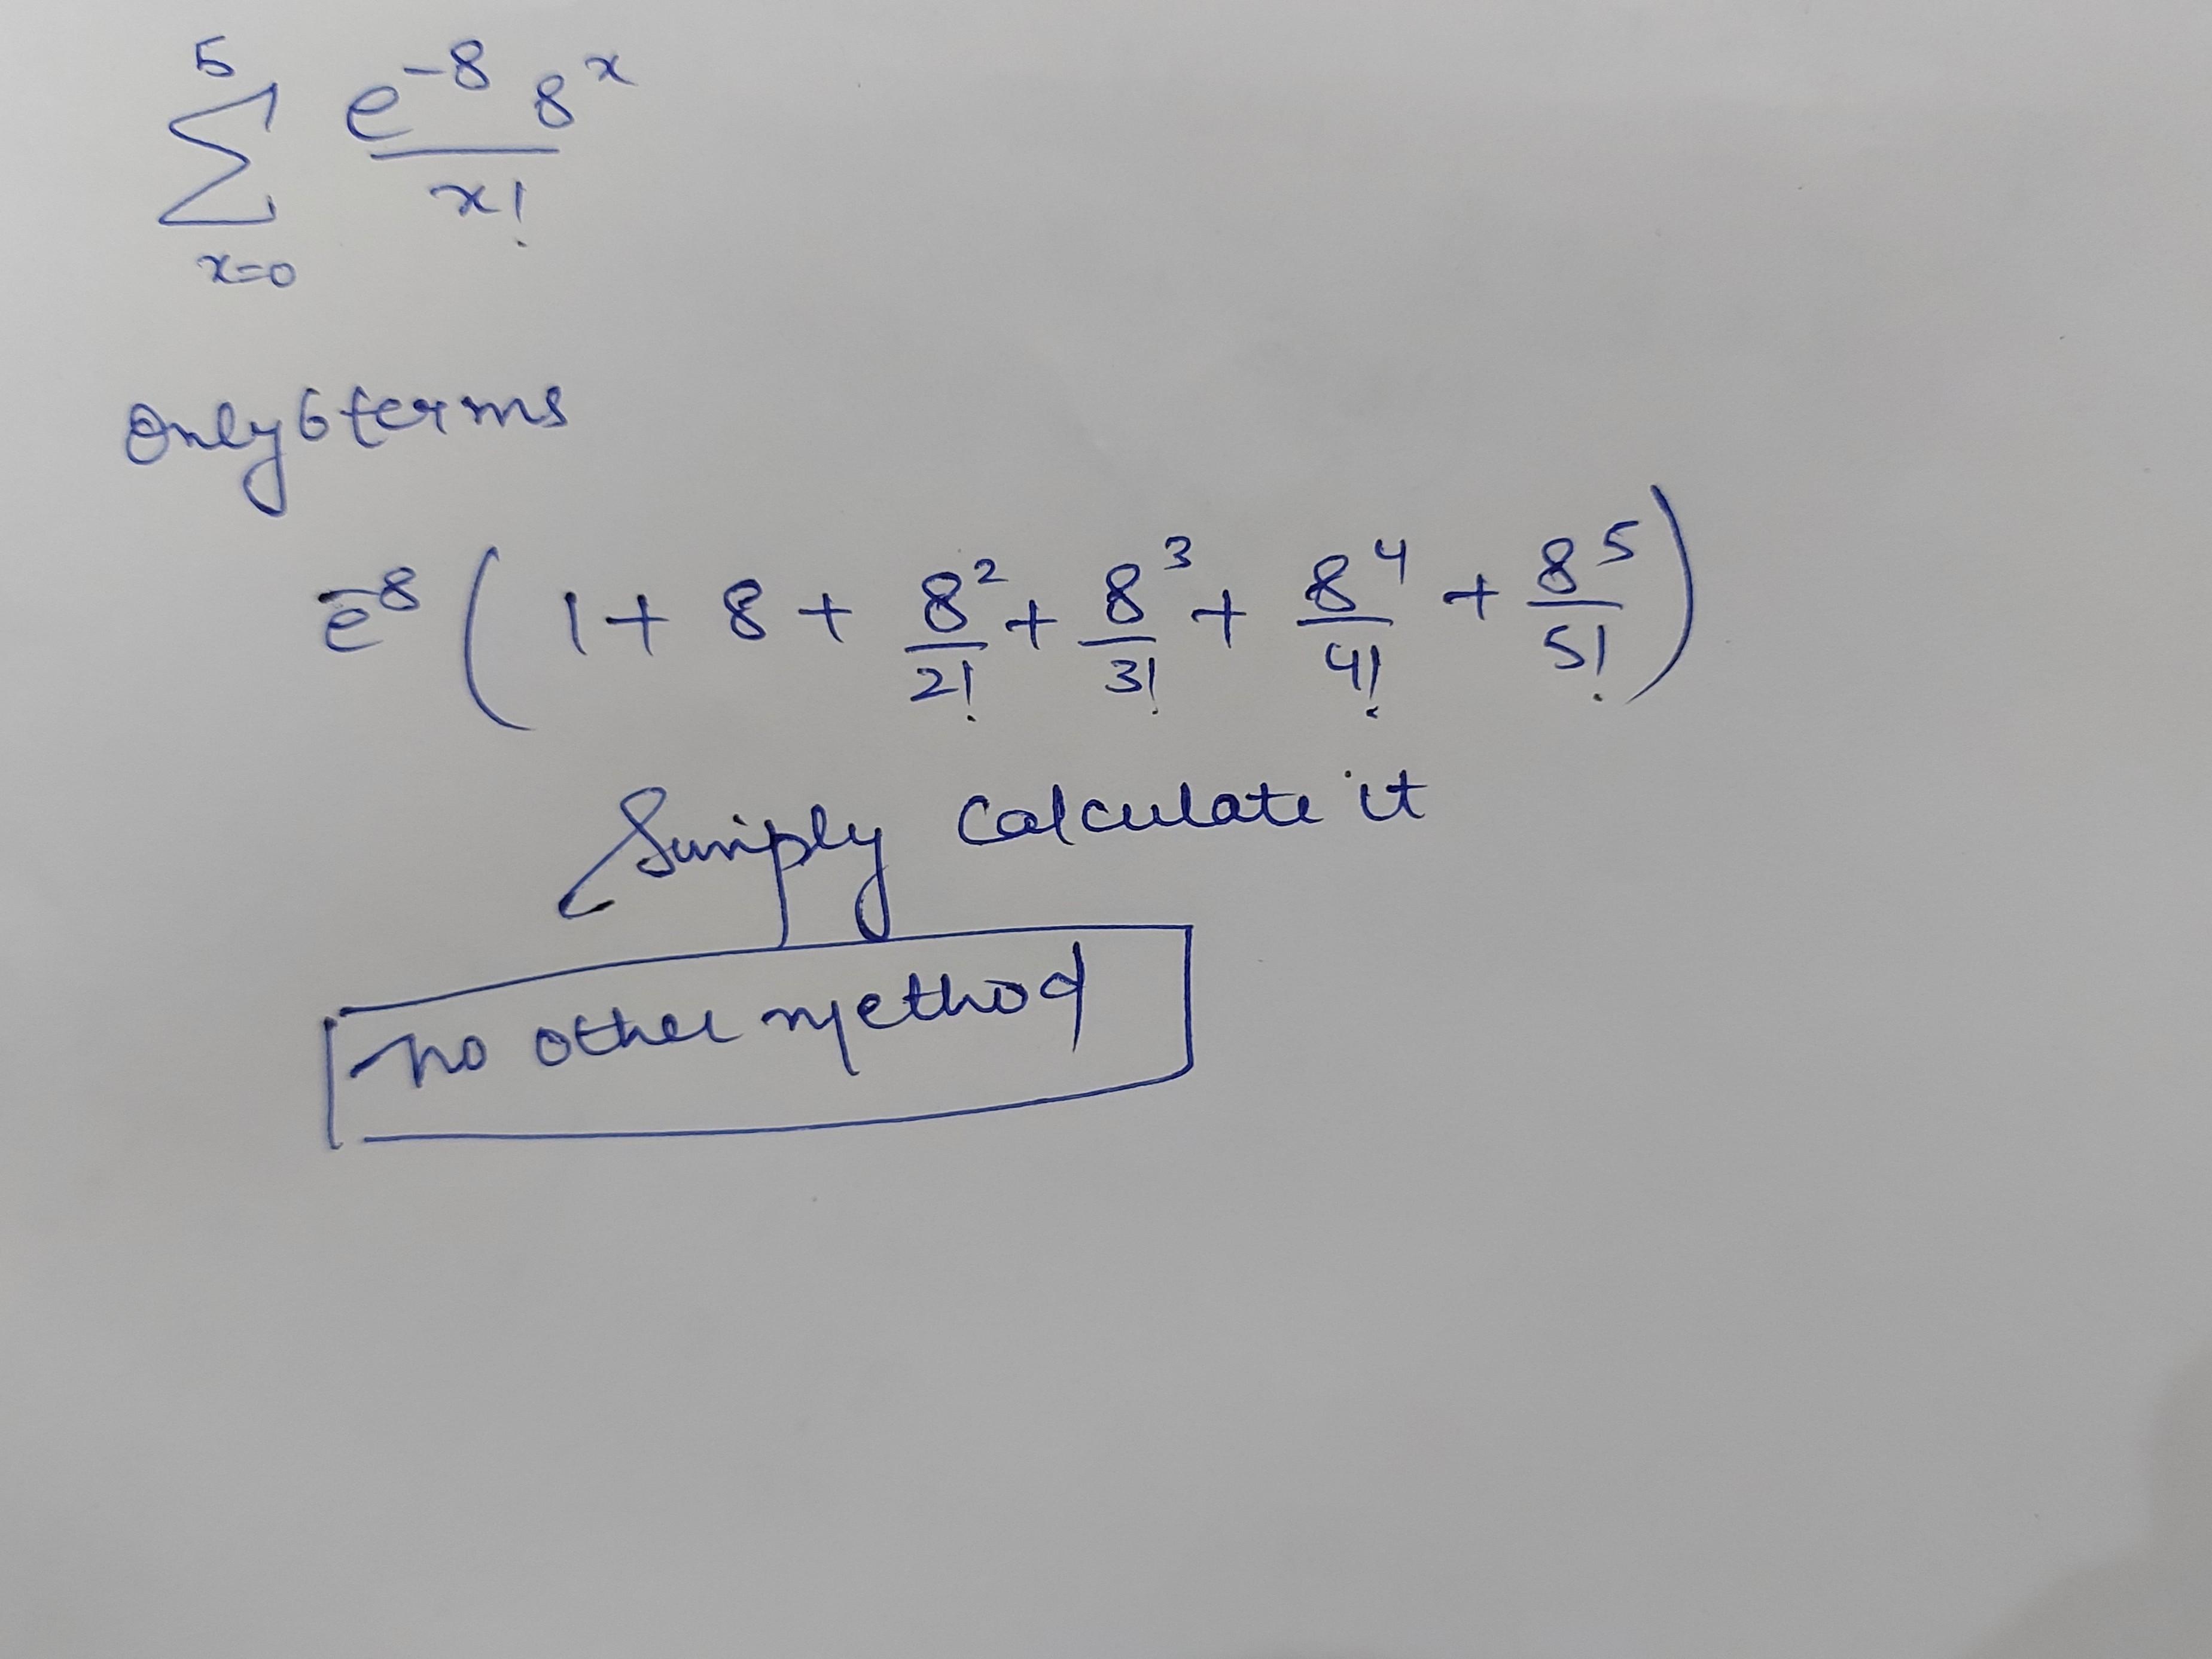 5
∑ e⁻⁸ 8ˣ / x!
x=0
Only 6 terms
e⁻⁸ ( 1 + 8 + 8²/2! + 8³/3! + 8⁴/4! + 8⁵/5! )
Simply Calculate it
no other method